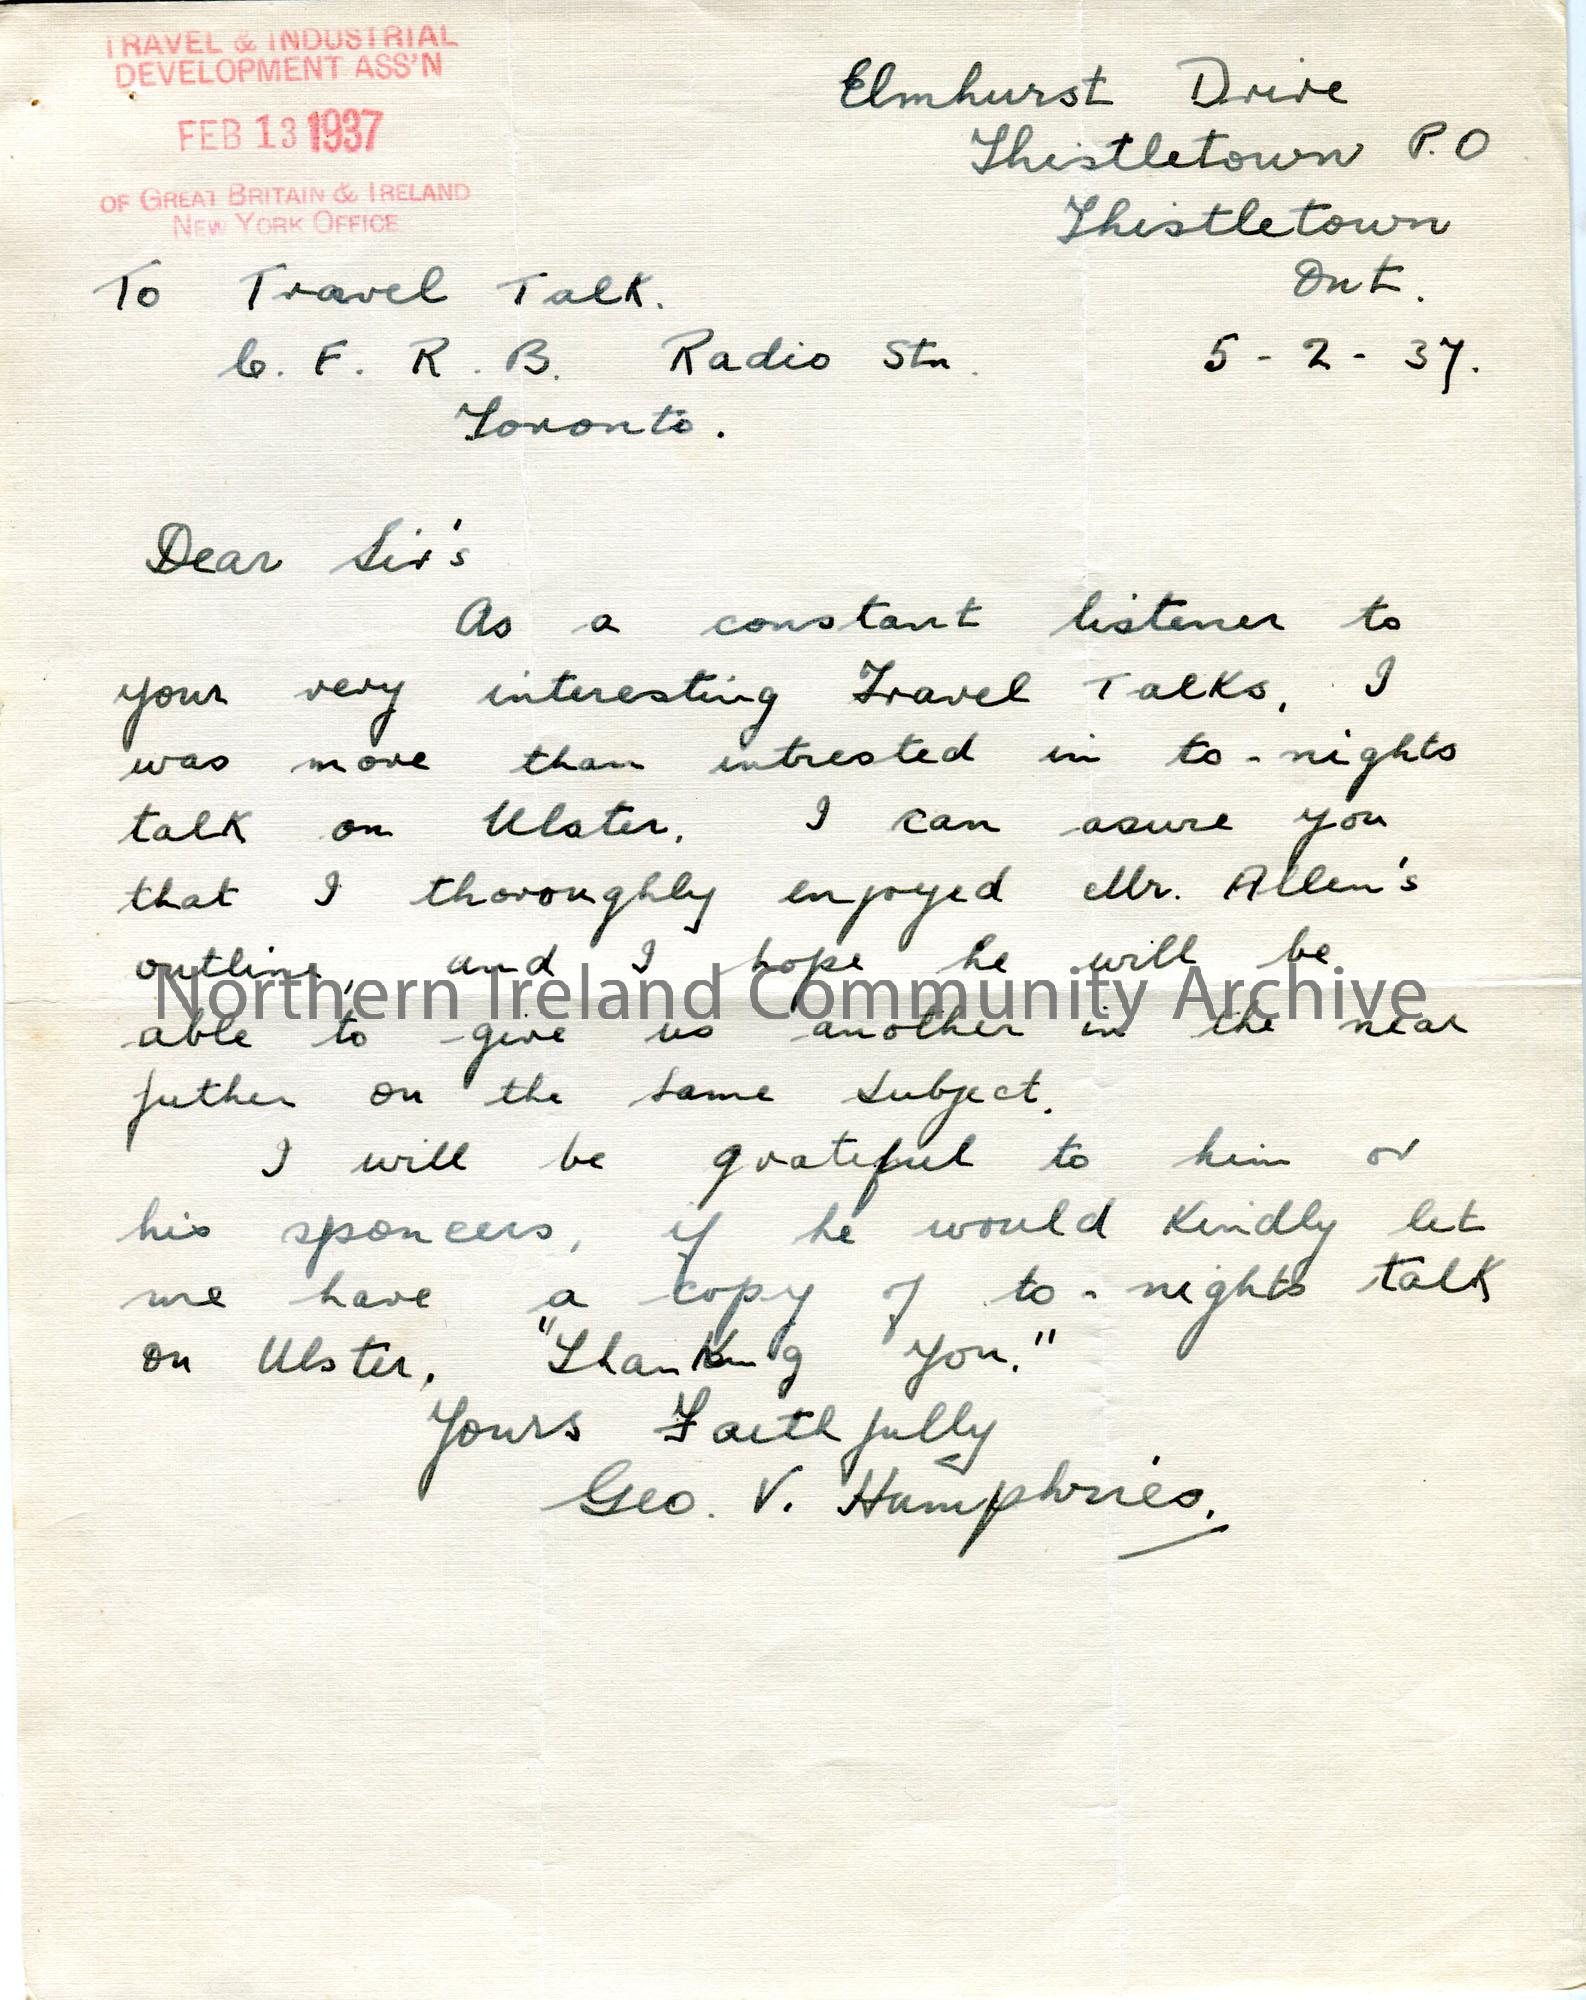 TRAVEL & INDUSTRIAL
DEVELOPMENT ASS'N
FEB 13 1937
OF GREAT BRITAIN & IRELAND
NEW YORK OFFICE
Elmhurst Drive
Thistletown P.O
Thistletown
Ont.
To Travel Talk.
C. F. R. B. Radio Stn.
5-2-37.
Toronto.
Dear Sir's
As a constant listener to
your very interesting Travel Talks, I
was more than intrested in to-nights
talk on Ulster. I can asure you
that I thoroughly enjoyed Mr. Allen's
outline, and I hope he will be
Northern Ireland Community Archive
able to give us another in the near
futher on the same subject.
I will be grateful to him or
his sponcers, if he would kindly let
me have a copy of to-nights talk
on Ulster. "Thanking you."
Yours Faithfully
Geo. V. Humphries.